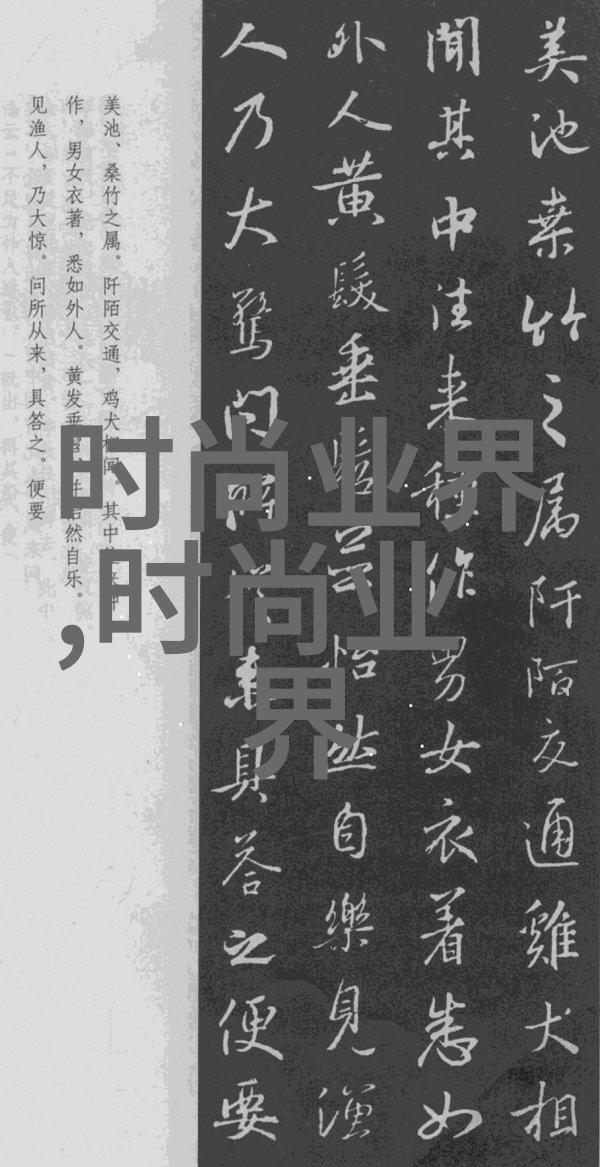 美池桒竹之属阡陌交通雞犬相
聞其中往来種作男女衣着悉如
外人黄髮垂髫並怡然自樂見漁
人乃大驚問所從来具答之便要
美池、桑竹之属。阡陌交通，鸡犬相闻。其中往来种
作，男女衣著，悉如外人。黄发垂髫，并怡然自乐。
见渔人，乃大惊。问所从来，具答之。便要
时尚业界
,时尚业
界